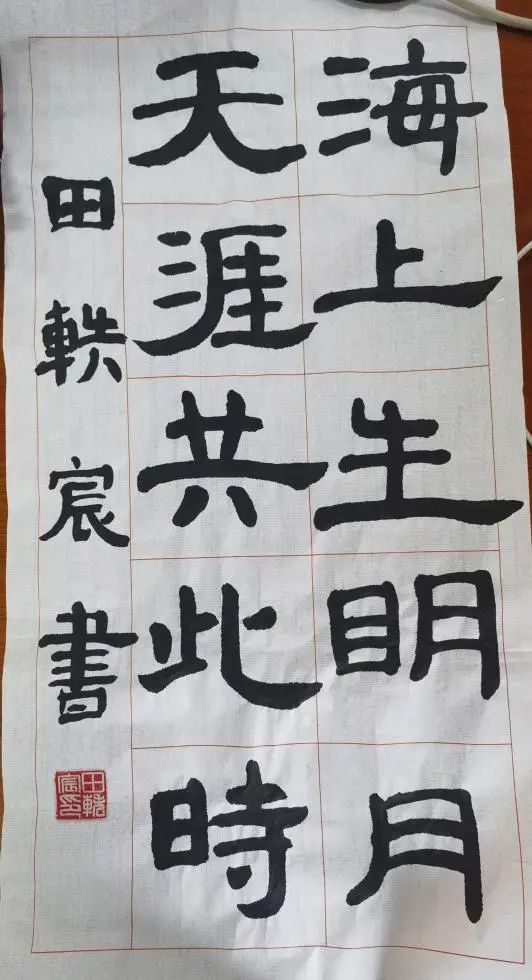 海上生明月
天涯共此時
田軼宸書
田軼宸印